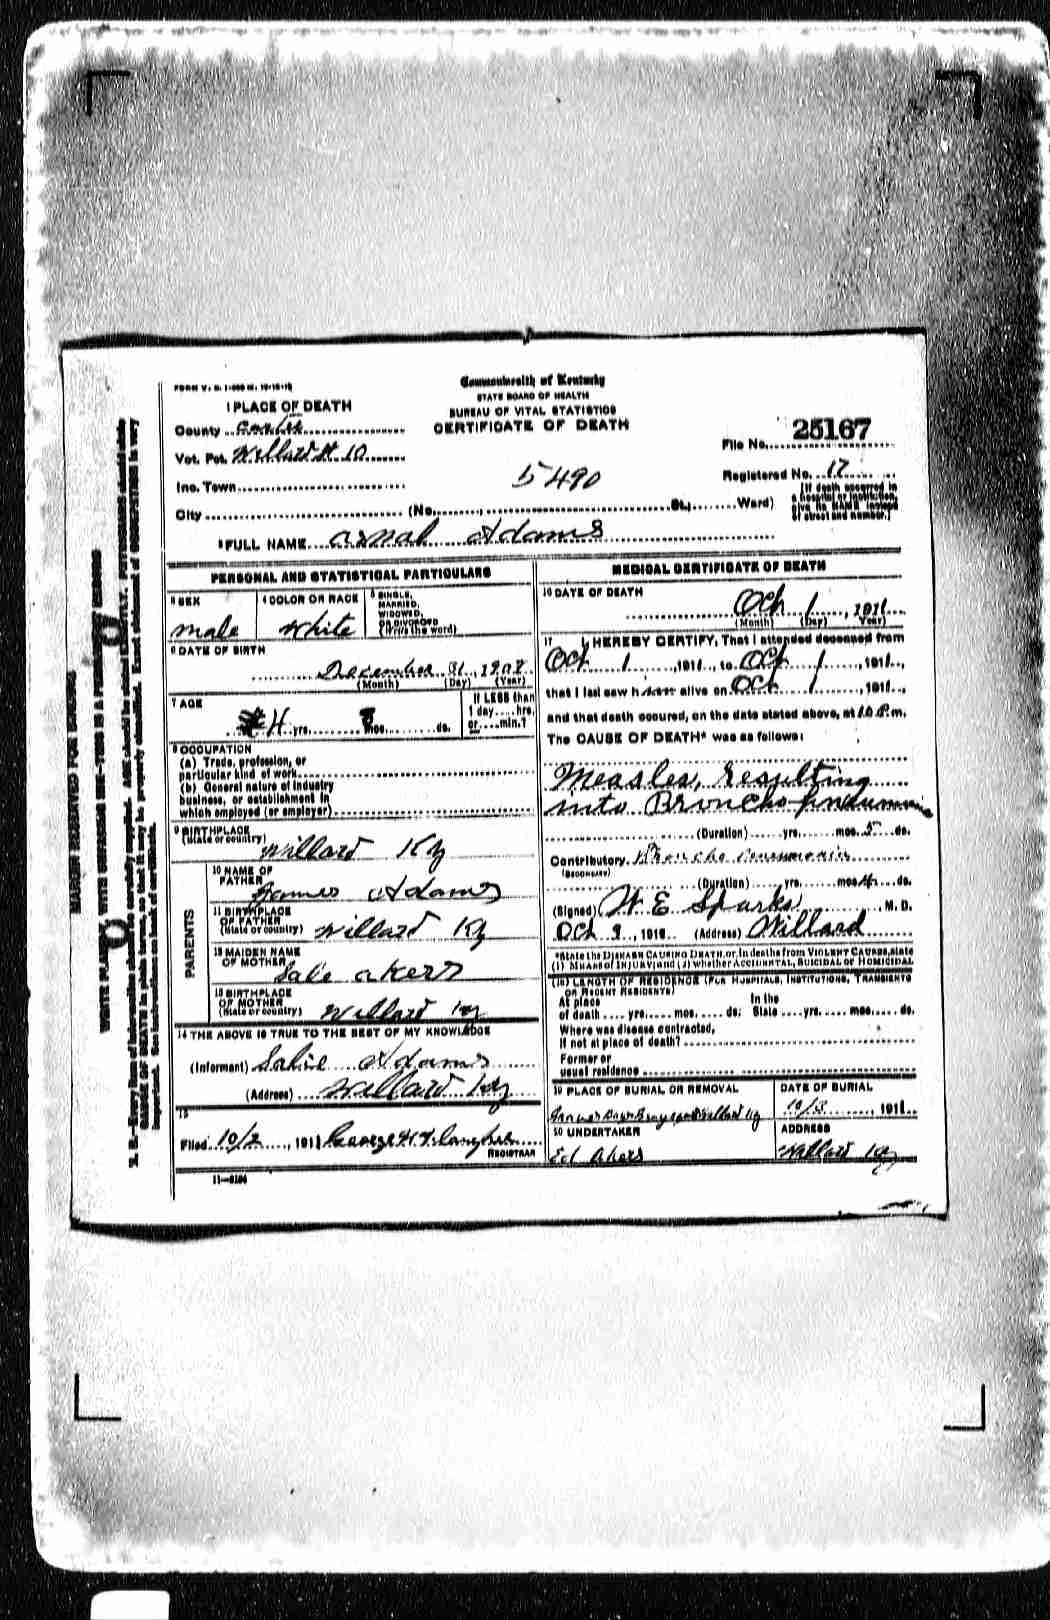 FORM V. S. 1-
Commonwealth of Kentucky
STATE BOARD OF HEALTH
BUREAU OF VITAL STATISTICS
CERTIFICATE OF DEATH
1 PLACE OF DEATH
County Carter
Vot. Pct. Willard # 10
Inc. Town
City (No. St.; Ward)
5490
File No. 25167
Registered No. 17
[If death occurred in
a hospital or institution,
give its NAME instead
of street and number.]
2 FULL NAME Arnal Adams
PERSONAL AND STATISTICAL PARTICULARS
3 SEX
male
4 COLOR OR RACE
White
5 SINGLE,
MARRIED,
WIDOWED,
OR DIVORCED
(Write the word)
6 DATE OF BIRTH
December 31, 1908
(Month) (Day) (Year)
7 AGE
4 yrs. 8 mos. ds.
If LESS than
1 day.... hrs.
or.....min.?
8 OCCUPATION
(a) Trade, profession, or
particular kind of work
(b) General nature of industry
business, or establishment in
which employed (or employer)
9 BIRTHPLACE
(State or country)
Willard Ky
PARENTS
10 NAME OF
FATHER
James Adams
11 BIRTHPLACE
OF FATHER
(State or country)
Willard Ky
12 MAIDEN NAME
OF MOTHER
Sale Akers
13 BIRTHPLACE
OF MOTHER
(State or country)
Willard Ky
14 THE ABOVE IS TRUE TO THE BEST OF MY KNOWLEDGE
(Informant) Salie Adams
(Address) Willard Ky
15
Filed 10/2, 1911 George
REGISTRAR
11-3184
MEDICAL CERTIFICATE OF DEATH
16 DATE OF DEATH
Oct 1, 1911
(Month) (Day) (Year)
17 I HEREBY CERTIFY, That I attended deceased from
Oct 1, 1911, to Oct 1, 1911,
that I last saw h alive on Oct 1, 1911,
and that death occured, on the date stated above, at 10 P.m.
The CAUSE OF DEATH* was as follows:
Measles, resulting
into Broncho-pneumonia
(Duration) yrs. mos. 5 ds.
Contributory. Broncho Pneumonia
(SECONDARY)
(Duration) yrs. mos. 4 ds.
(Signed) W E Sparks, M. D.
Oct 9, 1911 (Address) Willard
*State the DISEASE CAUSING DEATH, or, in deaths from VIOLENT CAUSES, state
(1) MEANS of INJURY; and (2) whether ACCIDENTAL, SUICIDAL or HOMICIDAL.
(18) LENGTH OF RESIDENCE (FOR HOSPITALS, INSTITUTIONS, TRANSIENTS
OR RECENT RESIDENTS)
At place In the
of death .... yrs. .... mos. .... ds. State .... yrs. .... mos. .... ds.
Where was disease contracted,
If not at place of death?
Former or
usual residence
19 PLACE OF BURIAL OR REMOVAL
Willard Ky
DATE OF BURIAL
10/3, 1911
20 UNDERTAKER
Ed Akers
ADDRESS
Willard Ky
MARGIN RESERVED FOR BINDING
WRITE PLAINLY, WITH UNFADING INK—THIS IS A PERMANENT RECORD
N. B.—Every item of information should be carefully supplied. AGE should be stated EXACTLY. PHYSICIANS should state
CAUSE OF DEATH in plain terms, so that it may be properly classified. Exact statement of OCCUPATION is very
important. See instructions on back of certificate.